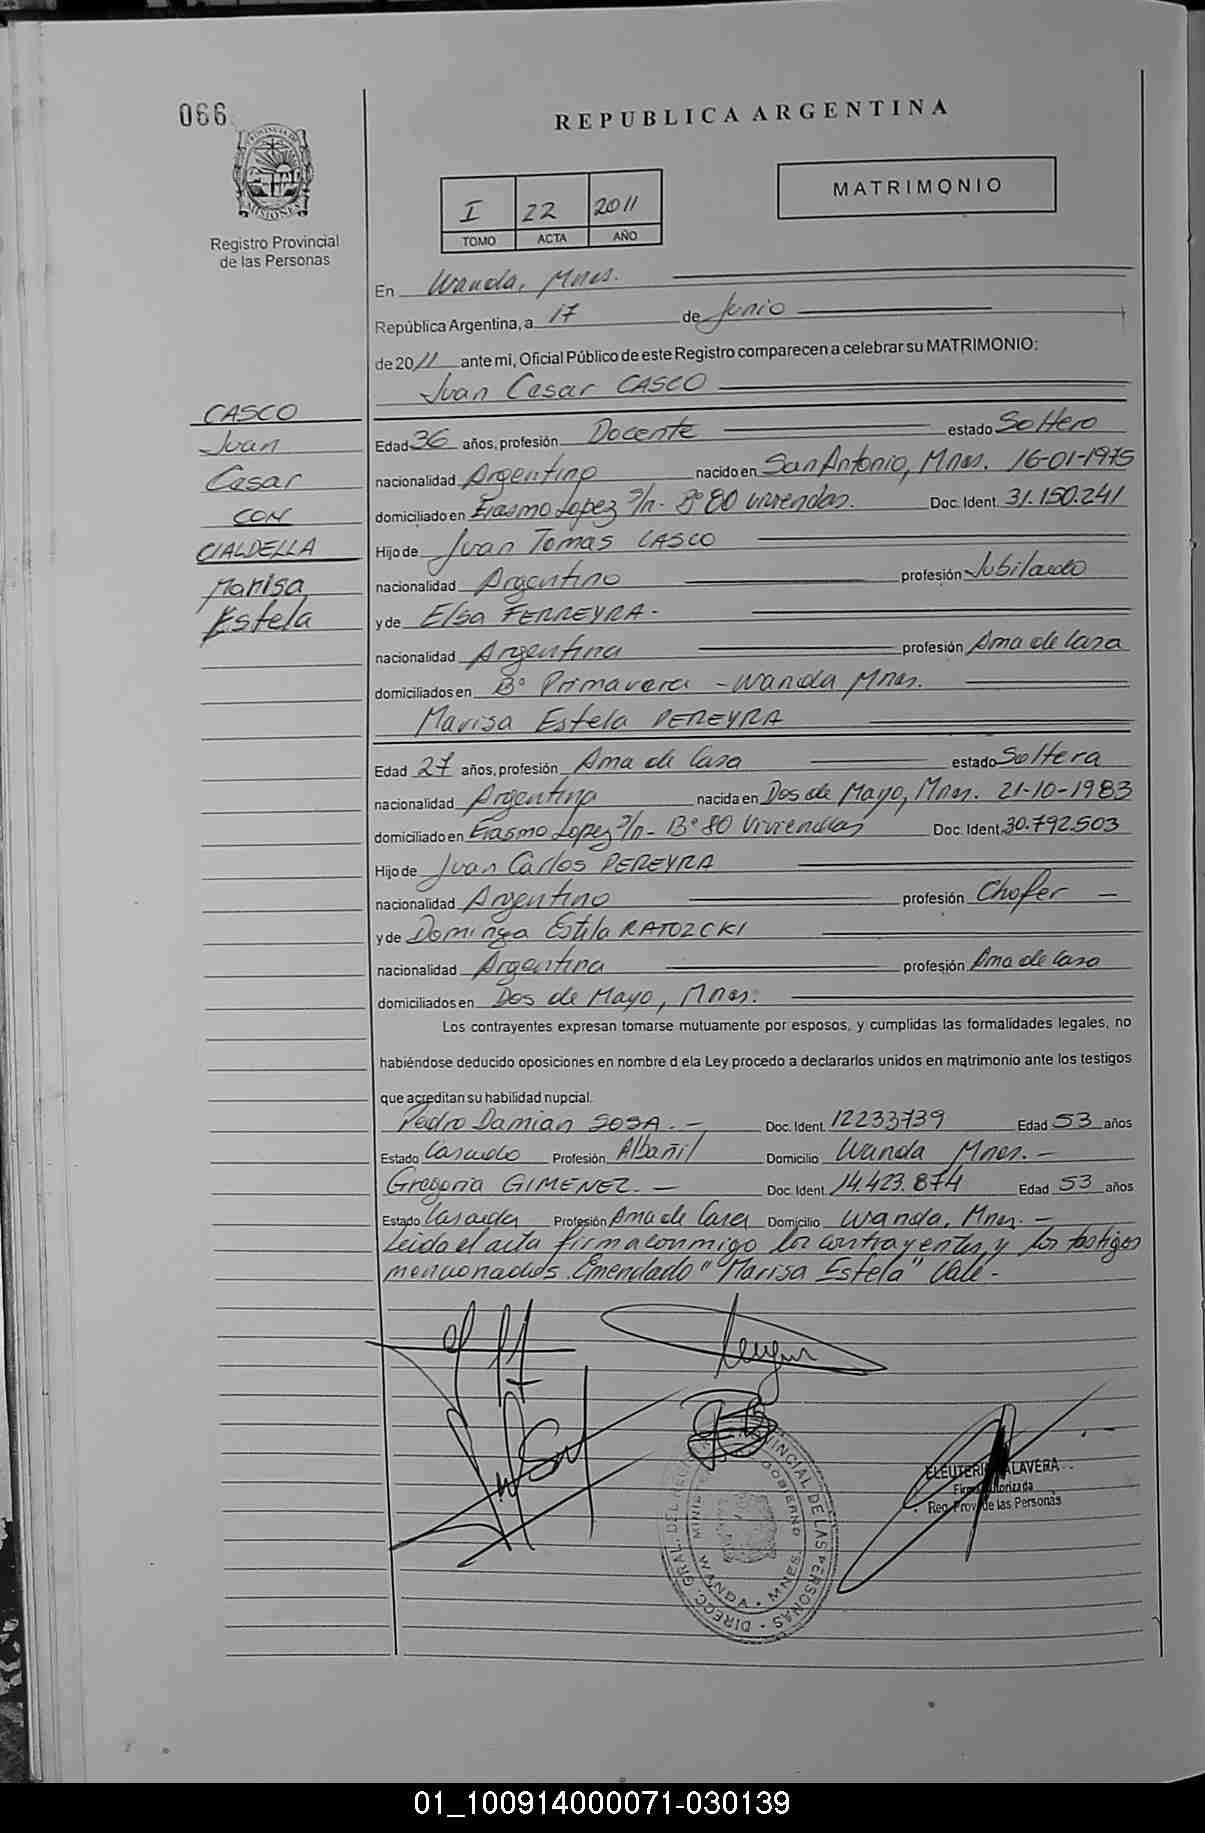 066
REPUBLICA ARGENTINA
PROVINCIA DE
MISIONES
Registro Provincial
de las Personas
I 22 2011
TOMO ACTA AÑO
MATRIMONIO
En Wanda, Mnes.
República Argentina, a 17 de Junio
de 2011 ante mi, Oficial Público de este Registro comparecen a celebrar su MATRIMONIO:
Juan Cesar CASCO
CASCO
Juan
Cesar
CON
CIALDELLA
Marisa
Estela
Edad 36 años, profesión Docente estado Soltero
nacionalidad Argentino nacido en San Antonio, Mnes. 16-01-1975
domiciliado en Erasmo Lopez s/n - B° 80 viviendas. Doc. Ident. 31.150.241
Hijo de Juan Tomas CASCO
nacionalidad Argentino profesión Jubilado
y de Elsa FERREYRA -
nacionalidad Argentina profesión Ama de Casa
domiciliados en B° Primavera - Wanda Mnes.
Marisa Estela PEREYRA
Edad 27 años, profesión Ama de Casa estado Soltera
nacionalidad Argentina nacida en Dos de Mayo, Mnes. 21-10-1983
domiciliado en Erasmo Lopez s/n - B° 80 Viviendas Doc. Ident. 30.792.503
Hijo de Juan Carlos PEREYRA
nacionalidad Argentino profesión Chofer -
y de Dominga Estila RATOZCKI
nacionalidad Argentina profesión Ama de Casa
domiciliados en Dos de Mayo, Mnes.
Los contrayentes expresan tomarse mutuamente por esposos, y cumplidas las formalidades legales, no
habiéndose deducido oposiciones en nombre d ela Ley procedo a declararlos unidos en matrimonio ante los testigos
que acreditan su habilidad nupcial.
Pedro Damian SOSA. - Doc. Ident. 12233739 Edad 53 años
Estado Casado Profesión Albañil Domicilio Wanda Mnes. -
Gregoria GIMENEZ. - Doc. Ident. 14.423.874 Edad 53 años
Estado Casada Profesión Ama de Casa Domicilio Wanda, Mnes. -
Leida el acta firma conmigo los contrayentes y los testigos
mencionados. Emendado "Marisa Estela" Vale -
ELEUTERIO TALAVERA
Firma Autorizada
Reg. Prov. de las Personas
DIRECC. GRAL. DEL REGISTRO PROVINCIAL DE LAS PERSONAS
MINISTERIO GOBIERNO
WANDA - MNES.
01_100914000071-030139